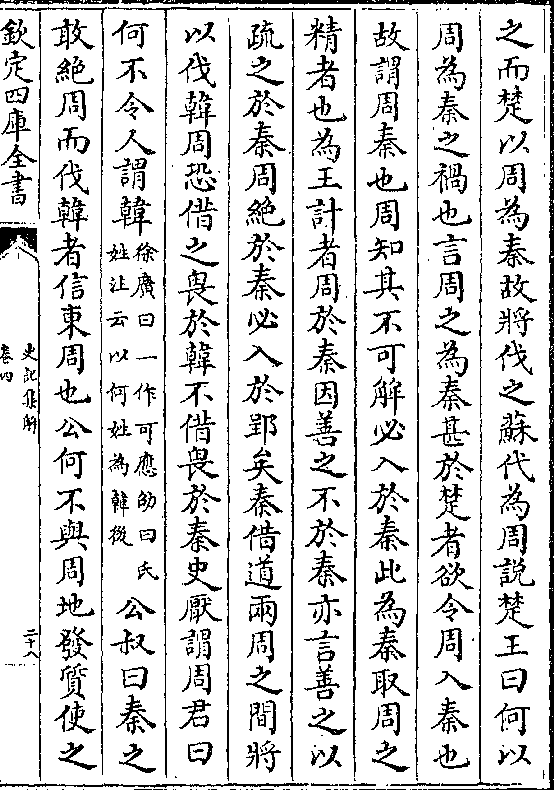 之而楚以周為秦故將伐之蘇代為周說楚王曰何以
周為秦之禍也言周之為秦甚於楚者欲令周入秦也
故謂周秦也周知其不可解必入於秦此為秦取周之
精者也為王計者周於秦因善之不於秦亦言善之以
疏之於秦周絶於秦必入於郢矣秦借道兩周之間將
以伐韓周恐借之畏於韓不借畏於秦史厭謂周君曰
何不令人謂韓徐廣曰一作可應劭曰氏姓注云以何姓為韓後公叔曰秦之
敢絶周而伐韓者信東周也公何不與周地發質使之
欽定四庫全書
史記集解
卷四
二十八